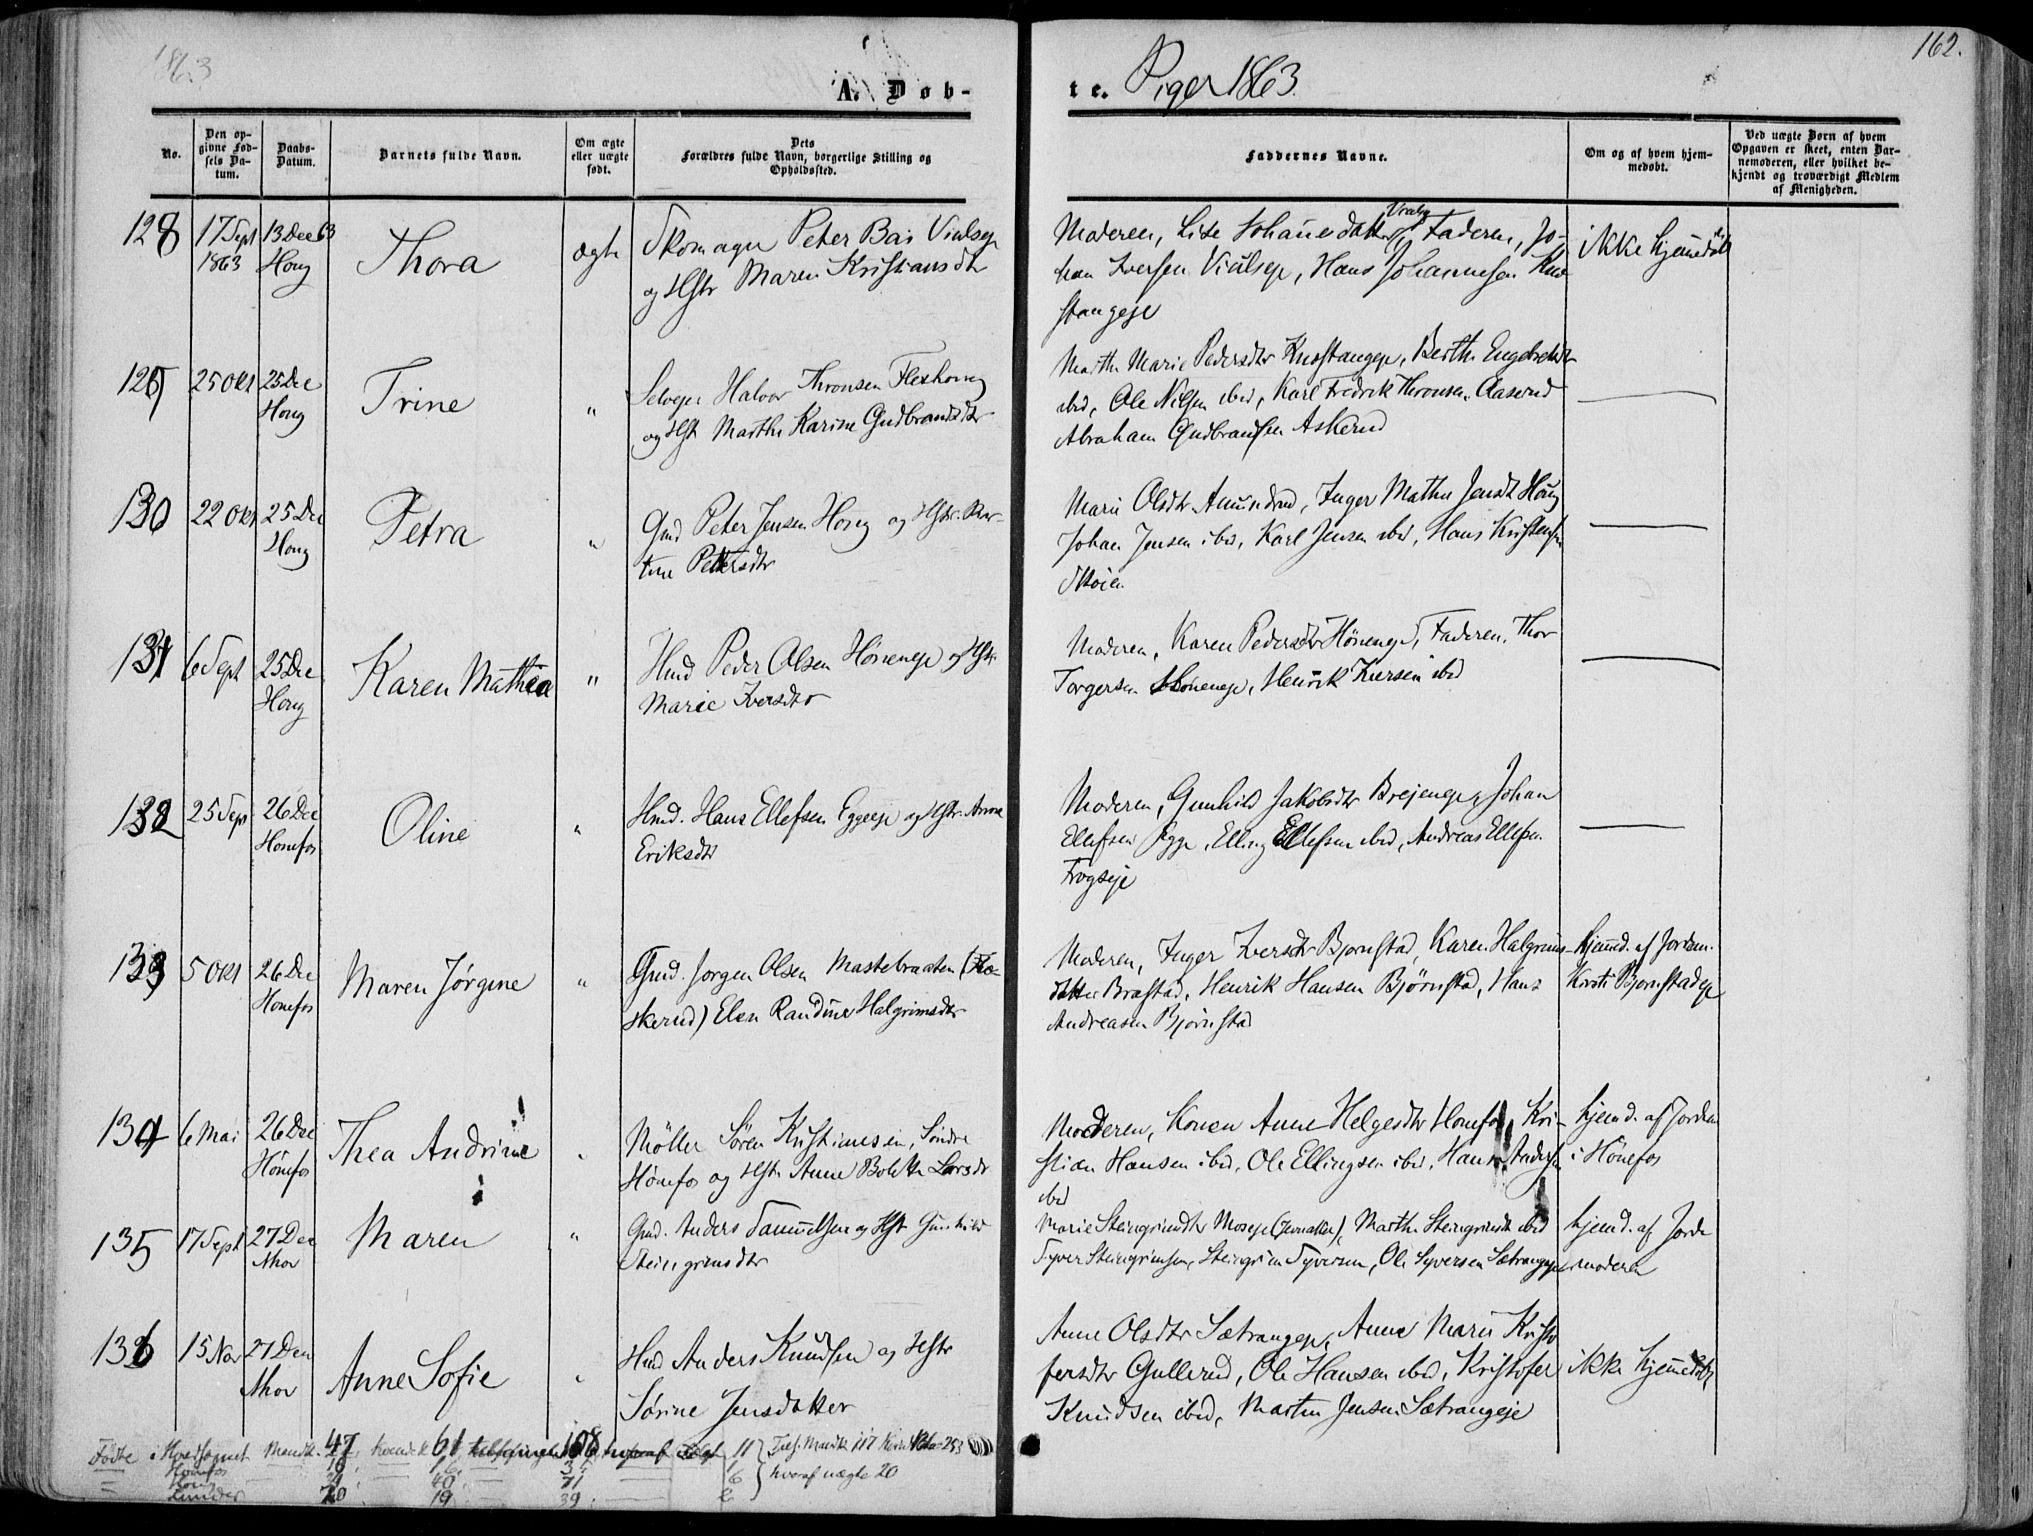 1863
162.
A. Døb-
te. Piger 1863.
No.
Den op-
givne Fød-
sels Da-
tum.
Daabs-
Datum.
Barnets fulde Navn.
Om ægte
eller uægte
født.
Dets
Forældres fulde Navn, borgerlige Stilling og
Opholdssted.
Faddernes Navne.
Om og af hvem hjem-
medøbt.
Ved uægte Børn af hvem
Opgaven er skeet, enten Bar-
nemoderen, eller hvilket be-
kjendt og troværdigt Medlem
af Menigheden.
128 17 Sept 13 Dec 63
1863 Houg
Thora
ægte
Skomager Peter Bai Vielseje
og Hstr Maren Kristiansdtr
Moderen, Lise Johannesdatter Faderen, Jo-
han Iversen Vielseje, Hans Johannesen Knæ-
stangeje
ikke hjemmedøbt
129 25 Okt 25 Dec
Houg
Trine
"
Selvejer Halvor Thronsen Fleskoug
og Hst Marthe Karine Gudbrandsdtr
Marthe Marie Pedersdtr Knæstangeje, Berthe Engebretsdtr
ibid, Ole Nilsen ibid, Karl Fredrik Thronsen Aaserud
Abraham Gudbransen Askerud
130 22 Okt 25 Dec
Houg
Petra
"
Gmd Peter Jensen Houg og Hstr. Mar-
tine Pettersdtr
Marie Olsdtr Amundrud, Inger Mathea Jensdtr Houg
Johan Jensen ibid, Karl Jensen ibid, Hans Kristensen
Skøien
131 6 Sept 25 Dec
Houg
Karen Mathea
"
Hmd Peder Olsen Høneneje og Hstr
Marie Iversdtr
Moderen, Karen Pedersdtr Høneneje, Faderen, Thor
Torgersen Høneneje, Henrik Iversen ibid
132 25 Sept 26 Dec
Honefos
Oline
"
Hmd. Hans Ellefsen Eggeeje og Hstr. Anne
Eriksdtr
Moderen, Gunhild Jakobsdtr Breieneje, Johan
Ellefsen Egge, Elling Ellefsen ibid, Andreas Ellefsen
Frogseje
133 5 Okt 26 Dec
Honefos
Maren Jørgine
"
Gmd. Jørgen Olsen Mastebraaten (Flo-
skerud) Elen Randine Halgrimsdtr
Moderen, Inger Iversdtr Bjørnstad, Karen Halgrims-
datter Brastad, Henrik Hansen Bjørnstad, Hans
Andreasen Bjørnstad
hjemd. af Jordem.
Kirsti Bjørnstadeje
134 6 Mai 26 Dec
Hønefos
Thea Andrine
"
Møller Søren Kristiansen, Søndre
Hønefos og Hstr Anne Bolette Larsdtr
Moderen, Konen Anne Helgesdtr Honefos, Kri-
stian Hansen ibid, Ole Ellingsen ibid, Hans Andersen
ibid
hjemd. af Jordem
i Hønefos
135 17 Sept 27 Dec
Nkor
Maren
"
Gmd. Anders Samuelsen og Hstr Gunhild
Steingrimsdtr
Marie Steingrimsdtr Moseje, Marthe Steingrimsdtr ibid
Syver Steingrimsen, Steingrim Syversen, Ole Syversen Sætrangeje
hjemd. af Jorde
moderen
136 15 Nov 27 Dec
Nkor
Anne Sofie
"
Hmd Anders Knudsen og Hstr
Sørine Jensdatter
Anne Olsdtr Sætrangeje, Anne Marie Kristo
fersdtr Gullerud, Ole Hansen ibid, Kristofer
Knudsen ibid, Martin Jensen Sætrangeje
ikke hjemmedøbt
Fødte i Hovedsognet Mandk. 47 kvindk 61 108 hvoraf uægte 11
Honefos 16 3 1
Houg 40 71 6 hvoraf uægte 20
Lunder 20 19 39 2